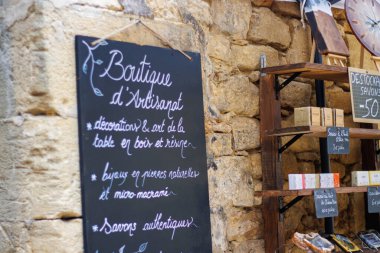 Boutique
d'Artisanat
* décorations & art de la
table en bois et résine
* bijoux en pierres naturelles
et micro-macramé
* Savons authentiques
DESTOCKAGE
SAVONS
-50